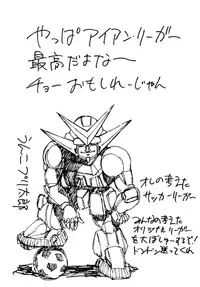 やっぱアイアンリーガー
最高だよなー
チョーおもしれーじゃん
オレの考えた
サッカーリーガー
みんなの考えた
オリジナルリーガー
を大ぼしゅーするぜ!
ドンドン送ってくれ